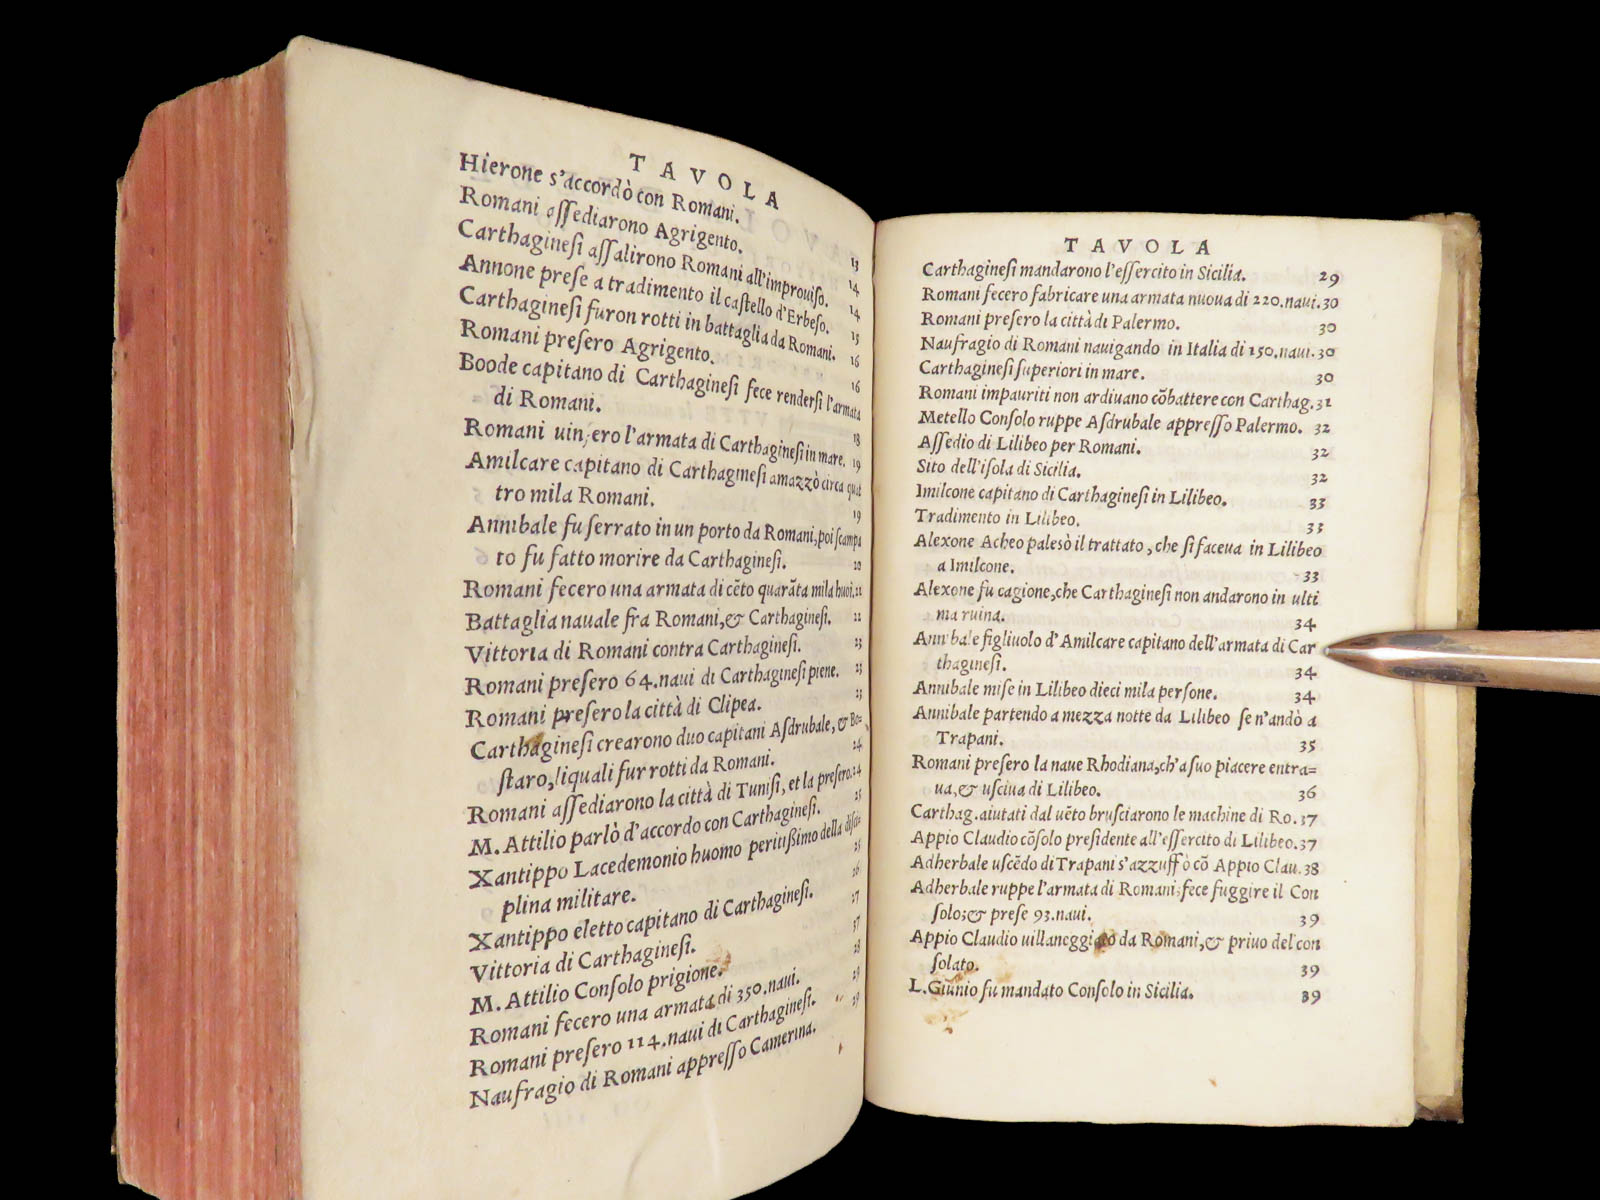 TAVOLA
Hierone s'accordò con Romani.
Romani aſſediarono Agrigento. 13
Carthagineſi aſſalirono Romani all'improuiſo. 14
Annone preſe a tradimento il caſtello d'Erbeſo. 14
Carthagineſi furon rotti in battaglia da Romani. 15
Romani preſero Agrigento. 16
Boode capitano di Carthagineſi fece renderſi l'armata 16
di Romani. 18
Romani uinſero l'armata di Carthagineſi in mare. 19
Amilcare capitano di Carthagineſi amazzò circa quat
tro mila Romani. 19
Annibale fu ſerrato in un porto da Romani, poi ſcampa
to fu fatto morire da Carthagineſi. 20
Romani fecero una armata di cēto quarāta mila huoī. 21
Battaglia nauale fra Romani, & Carthagineſi. 22
Vittoria di Romani contra Carthagineſi. 23
Romani preſero 64. naui di Carthagineſi piene. 23
Romani preſero la città di Clipea. 23
Carthagineſi crearono duo capitani Aſdrubale, & Bo=
ſtaro, liquali fur rotti da Romani. 24
Romani aſſediarono la città di Tuniſi, et la preſero. 24
M. Attilio parlò d'accordo con Carthagineſi. 25
Xantippo Lacedemonio huomo peritiſſimo della diſci=
plina militare. 25
Xantippo eletto capitano di Carthagineſi. 26
Vittoria di Carthagineſi. 27
M. Attilio Conſolo prigione. 27
Romani fecero una armata di 350. naui. 28
Romani preſero 114. naui di Carthagineſi. 29
Naufragio di Romani appreſſo Camerina. 29
TAVOLA
Carthagineſi mandarono l'eſſercito in Sicilia. 29
Romani fecero fabricare una armata nuoua di 220. naui. 30
Romani preſero la città di Palermo. 30
Naufragio di Romani nauigando in Italia di 150. naui. 30
Carthagineſi ſuperiori in mare. 30
Romani impauriti non ardiuano cōbattere con Carthag. 31
Metello Conſolo ruppe Aſdrubale appreſſo Palermo. 32
Aſſedio di Lilibeo per Romani. 32
Sito dell'iſola di Sicilia. 32
Imilcone capitano di Carthagineſi in Lilibeo. 33
Tradimento in Lilibeo. 33
Alexone Acheo palesò il trattato, che ſi faceua in Lilibeo
a Imilcone. 33
Alexone fu cagione, che Carthagineſi non andarono in ulti
ma ruina. 34
Annibale figliuolo d'Amilcare capitano dell'armata di Car
thagineſi. 34
Annibale miſe in Lilibeo dieci mila perſone. 34
Annibale partendo a mezza notte da Lilibeo ſe n'andò a
Trapani. 35
Romani preſero la naue Rhodiana, ch'a ſuo piacere entra=
ua, & uſciua di Lilibeo. 36
Carthag. aiutati dal uēto bruſciarono le machine di Ro. 37
Appio Claudio cōſolo preſidente all'eſſercito di Lilibeo. 37
Adherbale uſcēdo di Trapani s'azzuffò cō Appio Clau. 38
Adherbale ruppe l'armata di Romani; fece fuggire il Con
ſolo; & preſe 93. naui. 39
Appio Claudio uillaneggiato da Romani, & priuo del con
ſolato. 39
L. Giunio fu mandato Conſolo in Sicilia. 39